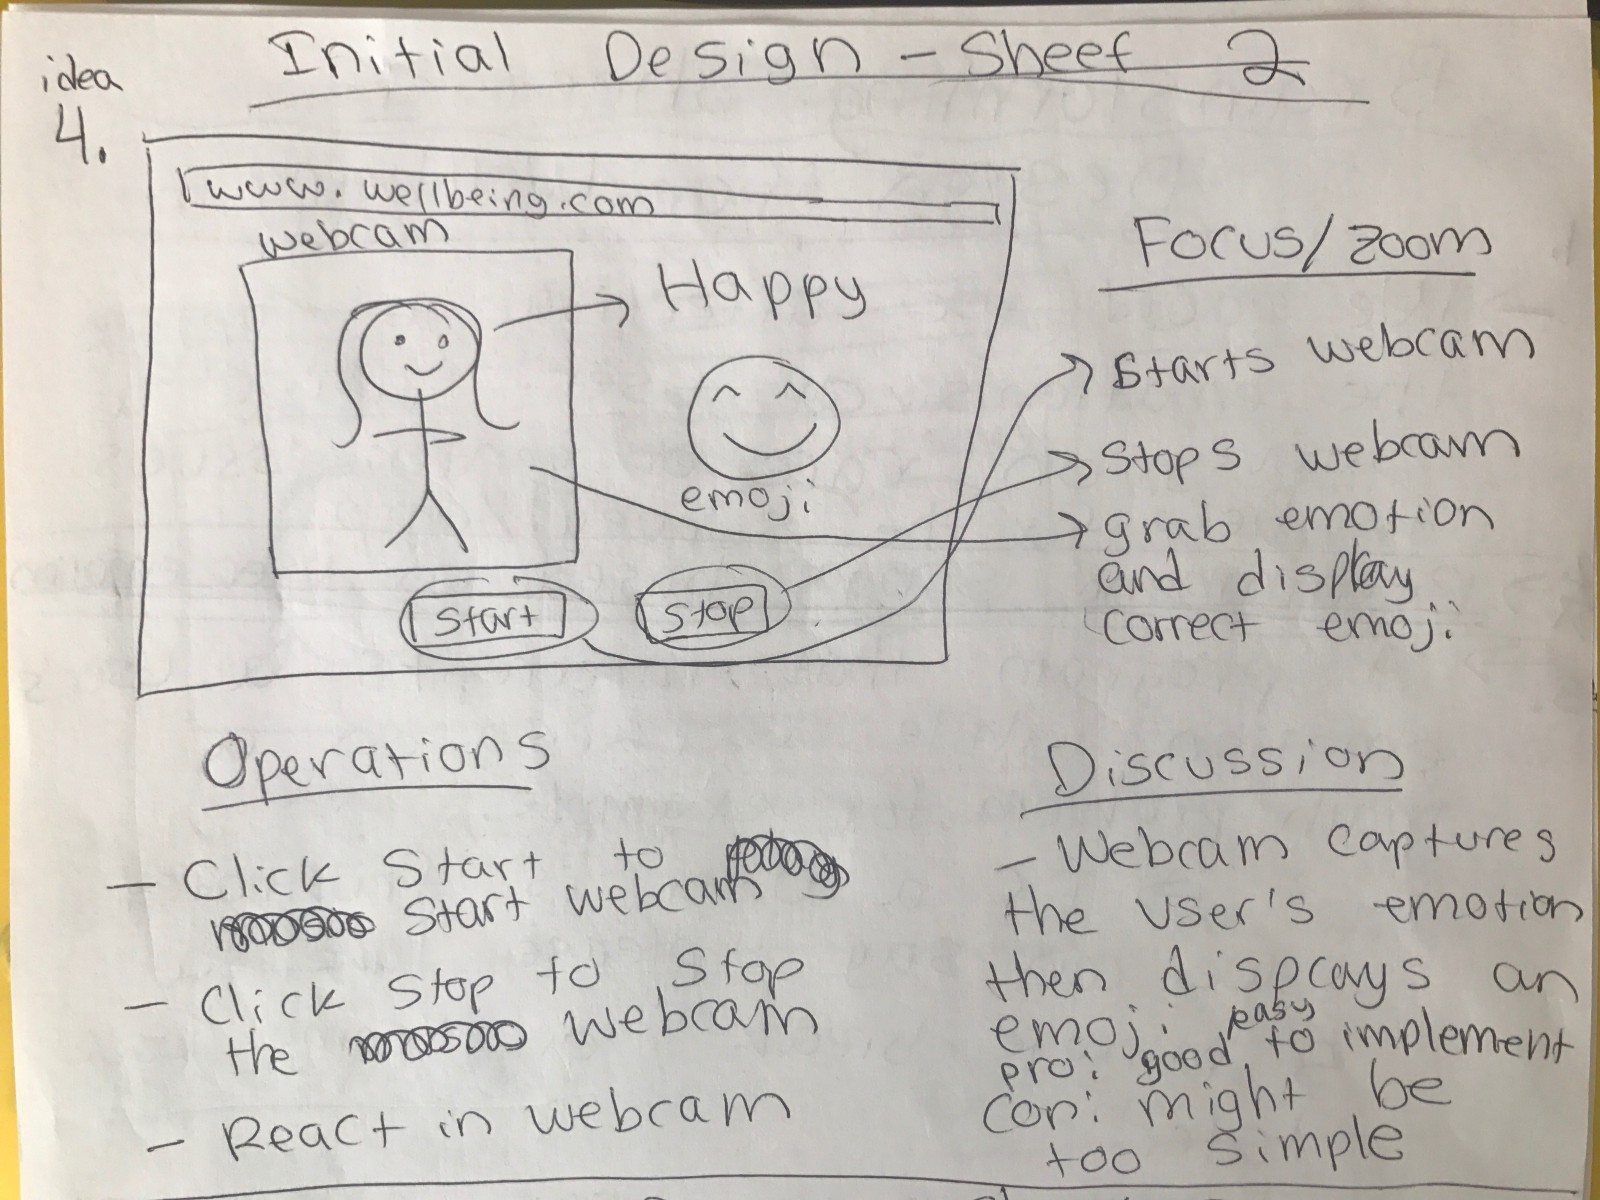 Initial Design - Sheet 2
idea
4.
www.wellbeing.com
webcam
Happy
emoji
Start
Stop
Focus/zoom
Starts webcam
Stops webcam
grab emotion
and display
correct emoji
Operations
- Click Start to
Start webcam
- Click Stop to Stop
the webcam
- React in webcam
Discussion
- Webcam captures
the user's emotion
then displays an
emoji
easy
pro: good, to implement
con: might be
too simple